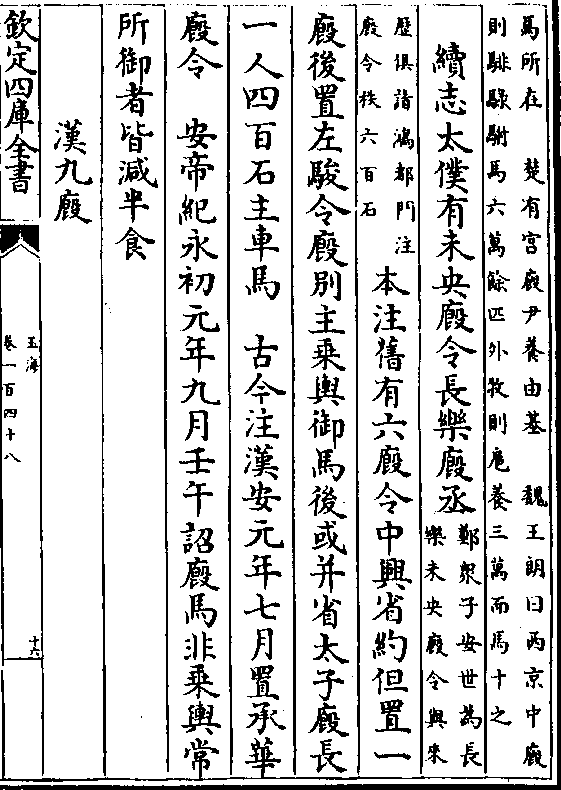 馬所在　楚有宫廏尹養由基　魏王朗曰西京中廏
則騑騄駙馬六萬餘匹外牧則扈養三萬而馬十之
續志太僕有未央廏令長樂廏丞鄭衆子安世為長
樂未央廏令與來
歴俱詣鴻都門注
廏令秩六百石本注舊有六廏令中興省約但置一
廏後置左駿令廏别主乗輿御馬後或并省太子廏長
一人四百石主車馬　古今注漢安元年七月置承華
廏令　安帝紀永初元年九月壬午詔廏馬非乗輿常
所御者皆減半食
漢九廏
欽定四庫全書
玉海
卷一百四十八
十六